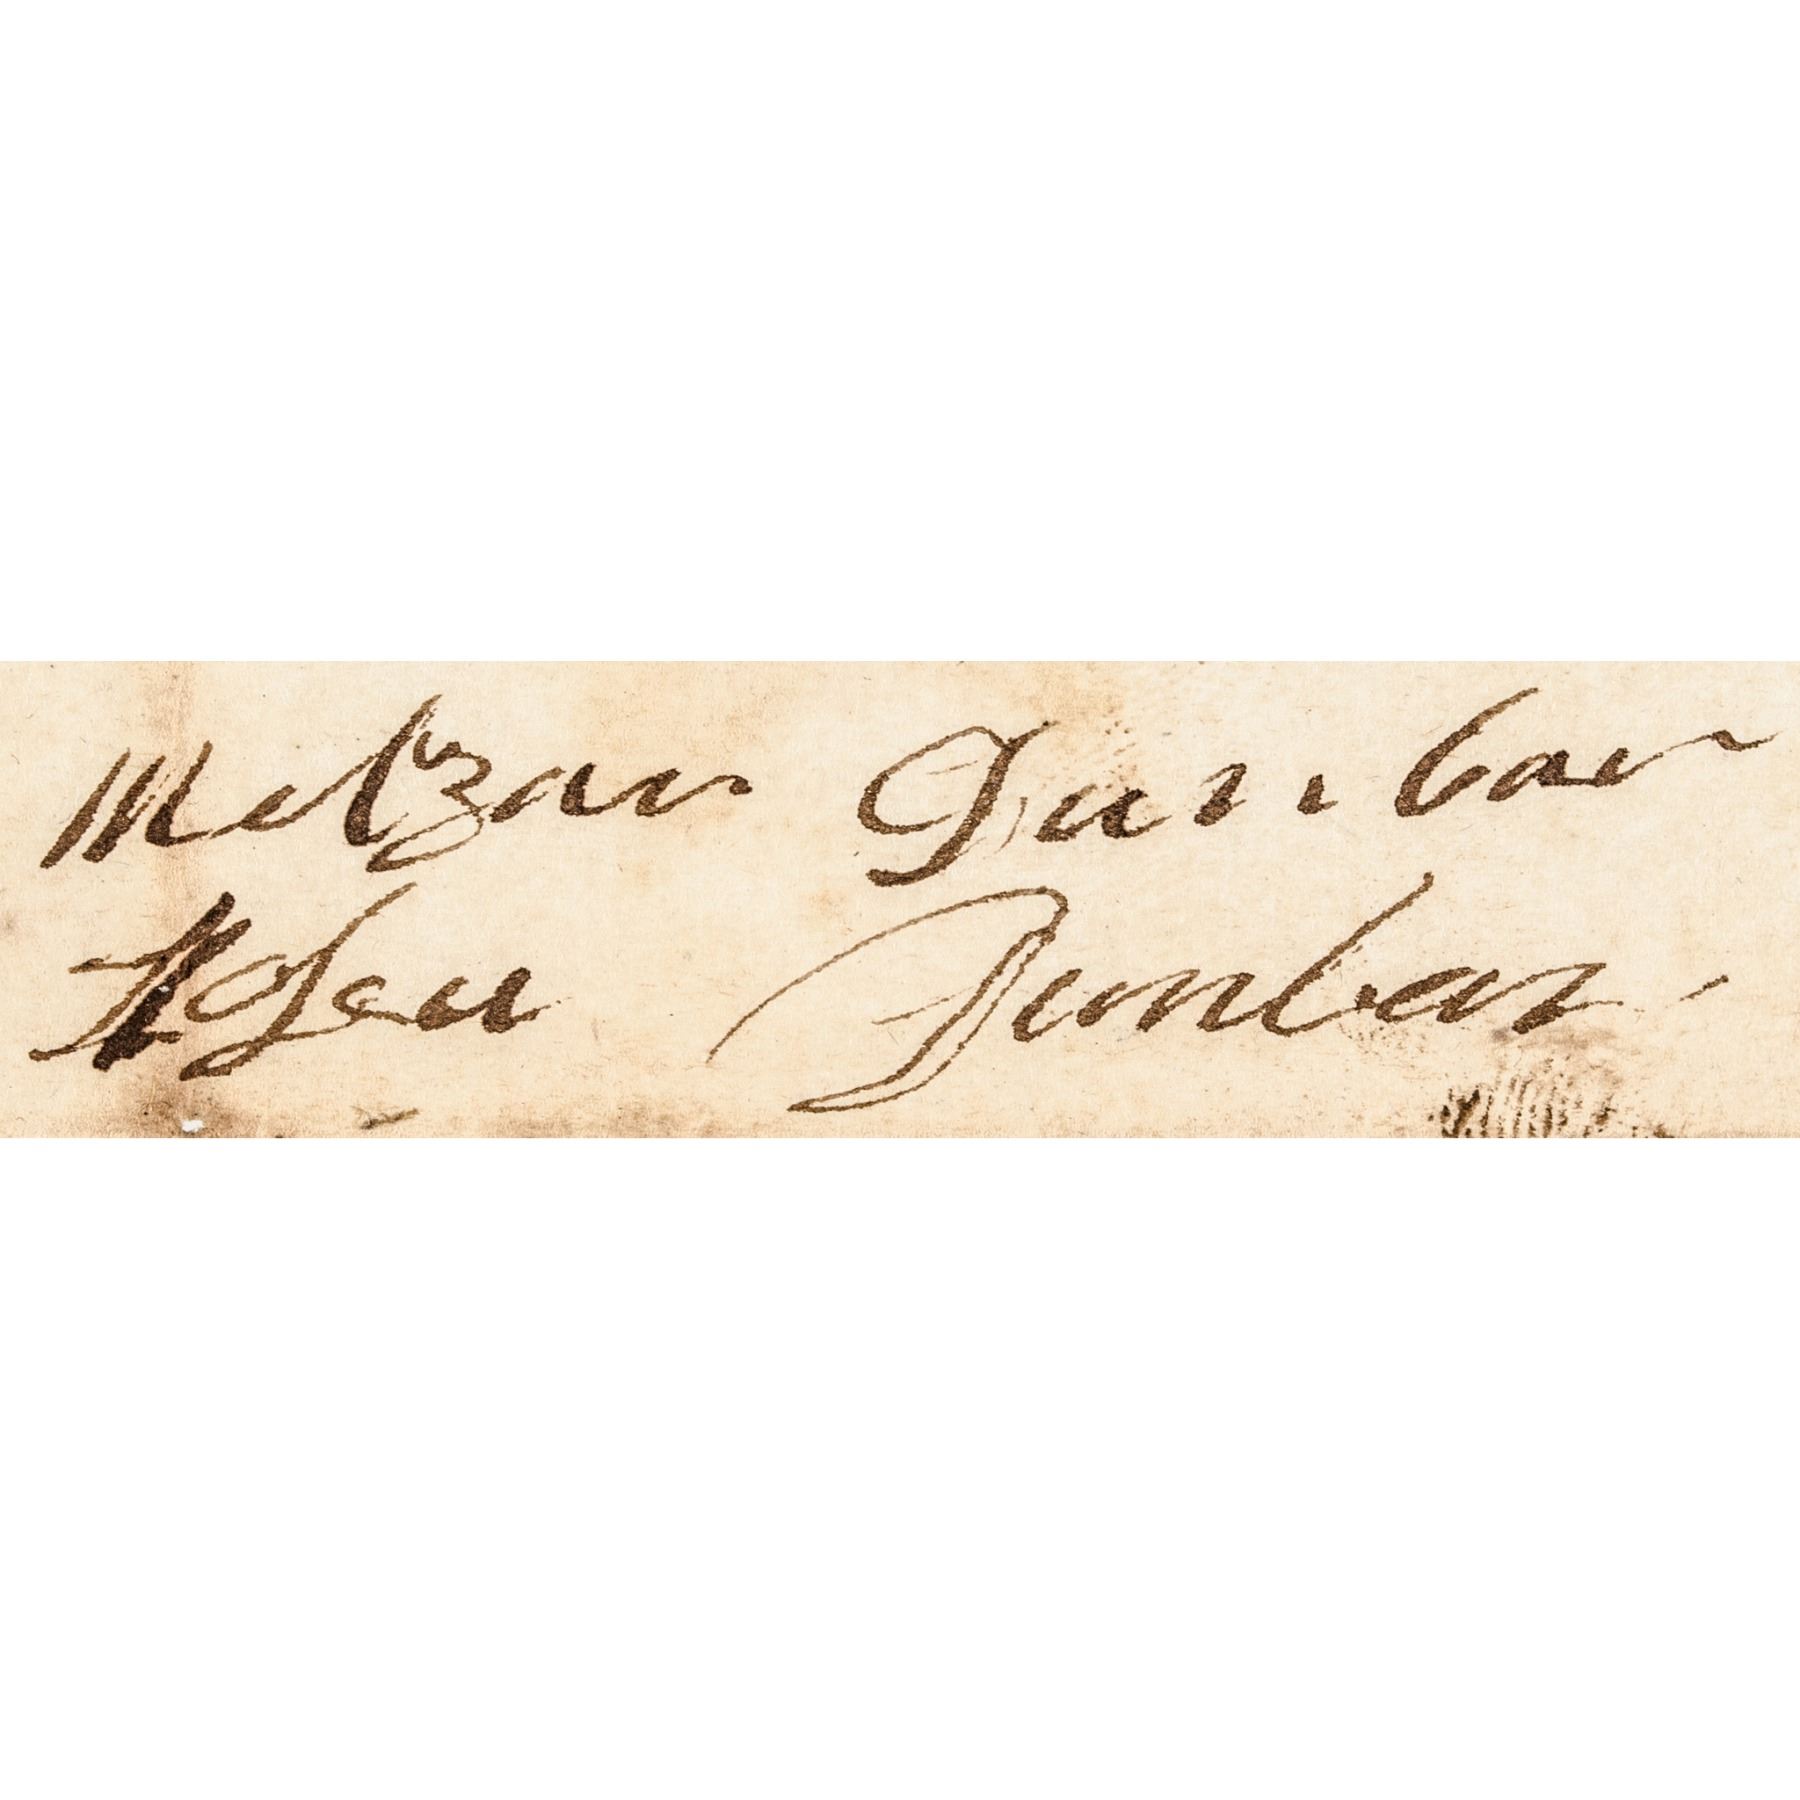 Melzar Dunbar
Hosea Dunbar